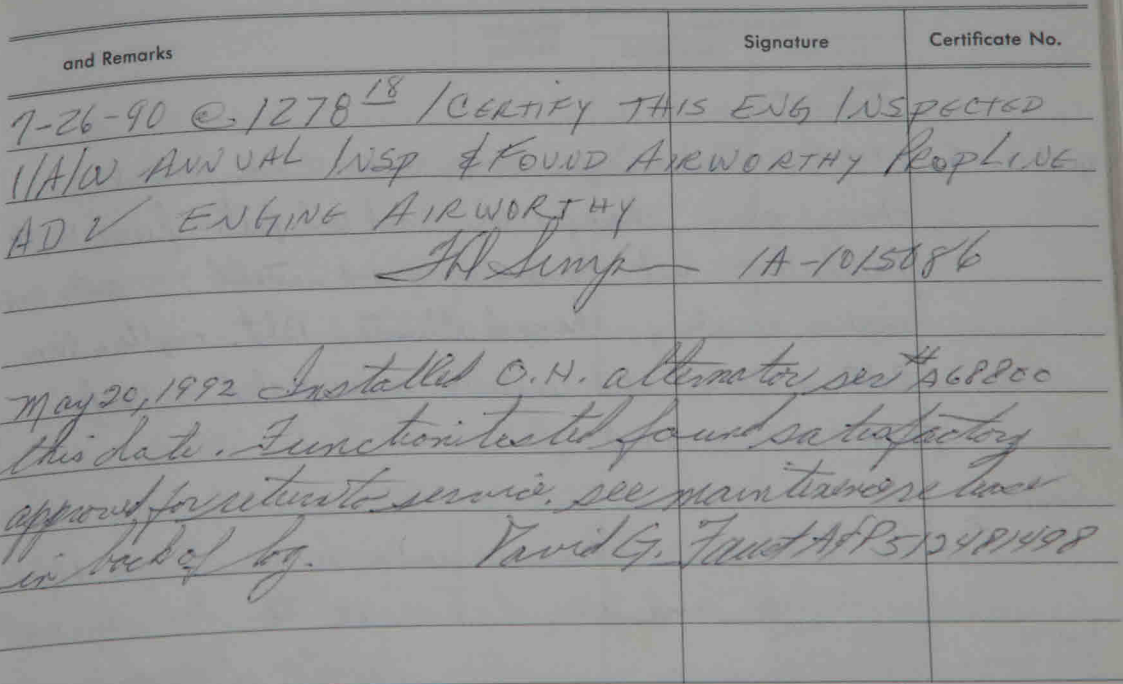 and Remarks Signature Certificate No.
7-26-90 @ 1278 18 I CERTIFY THIS ENG INSPECTED
I/A/W ANNUAL INSP & FOUND AIRWORTHY PROPLINE
AD ✓ ENGINE AIRWORTHY
IA-1015086
May 20, 1992 Installed O.H. alternator ser # A68800
this date. Function tested found satisfactory
approved for return to service. see maintenance release
in back of log. David G. Faust A&P 512481498